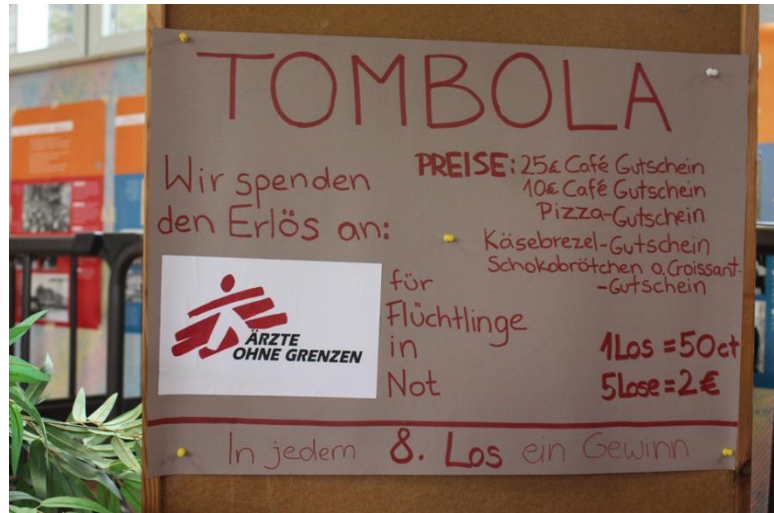 TOMBOLA
Wir spenden
den Erlös an:
ÄRZTE
OHNE GRENZEN
für
Flüchtlinge
in
Not
PREISE: 25€ Café Gutschein
10€ Café Gutschein
Pizza-Gutschein
Käsebrezel-Gutschein
Schokobrötchen o. Croissant-
-Gutschein
1 Los = 50ct
5 Lose = 2€
In jedem 8. Los ein Gewinn